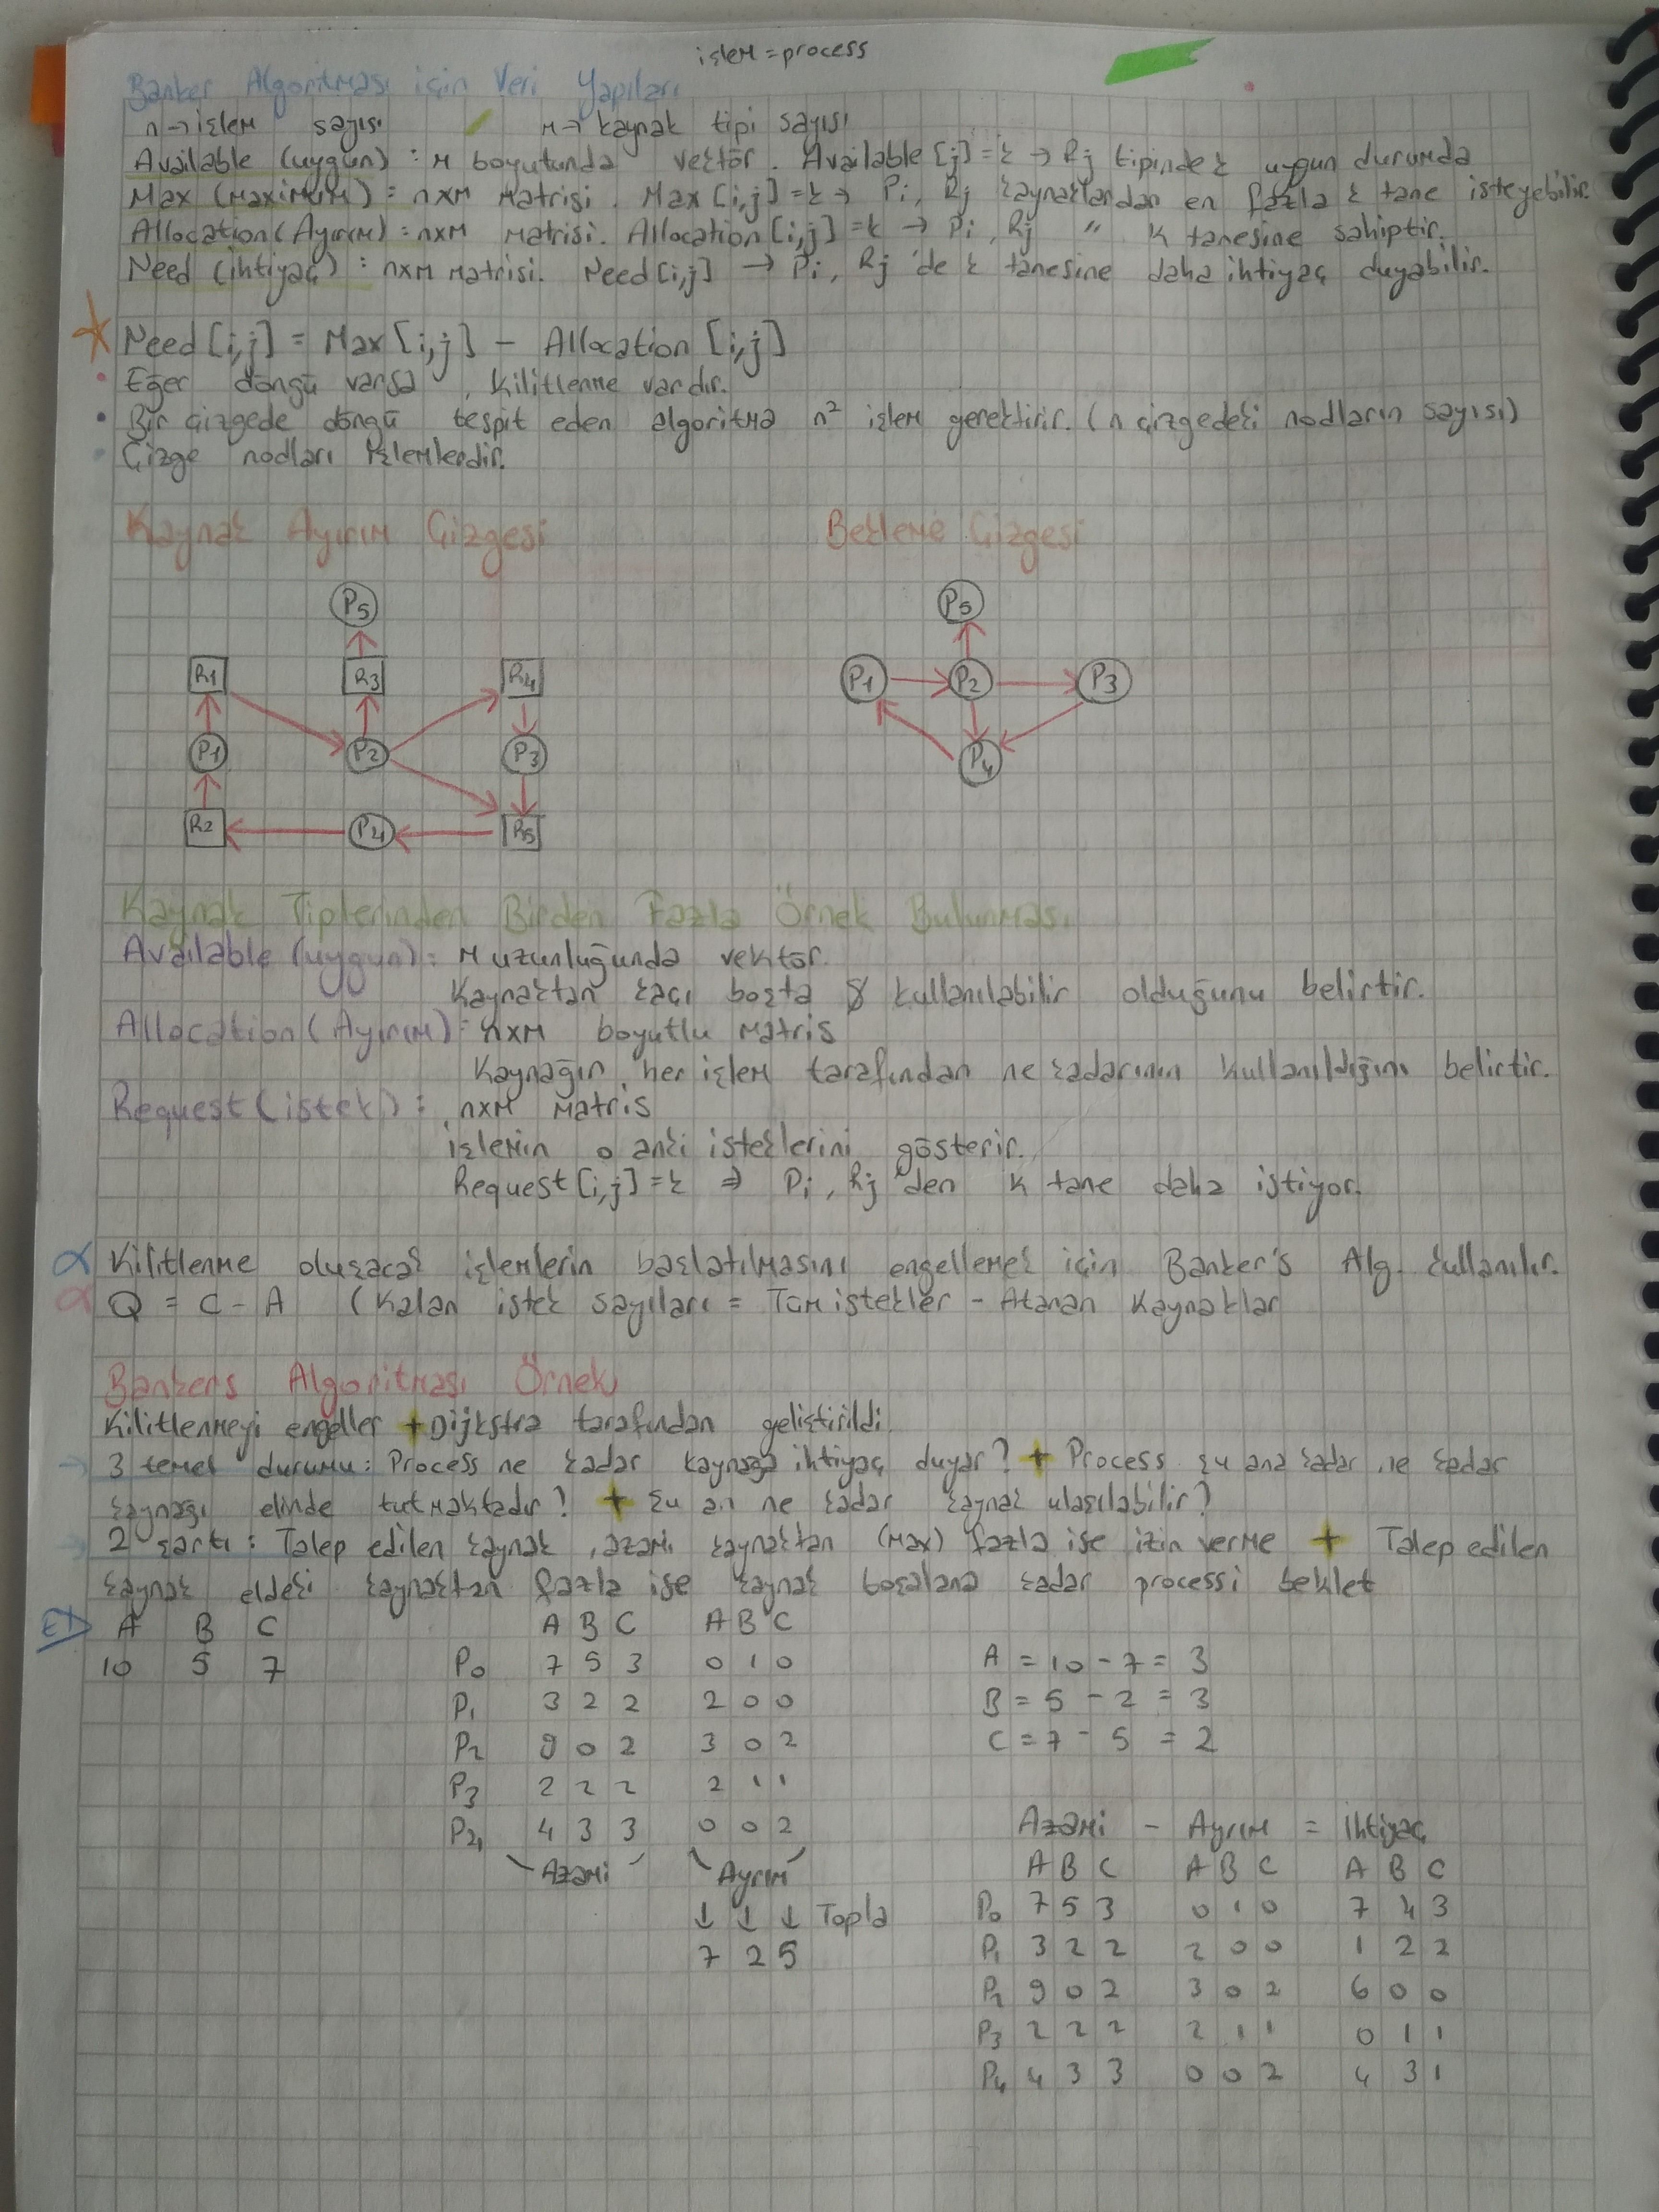 işlem = process
Banker Algoritması için Veri Yapıları
n → işlem sayısı m → kaynak tipi sayısı
Available (uygun) : m boyutunda vektör. Available [j] = k → Rj tipinde k uygun durumda
Max (Maximum) : nxm matrisi. Max [i,j] = k → Pi, Rj kaynaklardan en fazla k tane isteyebilir.
Allocation (Ayırım) : nxm matrisi. Allocation [i,j] = k → Pi, Rj " k tanesine sahiptir.
Need (ihtiyaç) : nxm matrisi. Need [i,j] → Pi, Rj 'de k tanesine daha ihtiyaç duyabilir.
Need [i,j] = Max [i,j] - Allocation [i,j]
• Eğer döngü varsa, kilitlenme vardır.
• Bir çizgede döngü tespit eden algoritma n² işlem gerektirir. (n çizgedeki nodların sayısı)
• Çizge nodları işlemlerdir.
Kaynak Ayırım Çizgesi Bekleme Çizgesi
P5 P5
R1 R3 R4 P1 P2 P3
P1 P2 P3 P4
R2 P4 R5
Kaynak Tiplerinden Birden Fazla Örnek Bulunması
Available (uygun) : m uzunluğunda vektör.
Kaynaktan kaçı boşta & kullanılabilir olduğunu belirtir.
Allocation (Ayırım) : nxm boyutlu matris
Kaynağın, her işlem tarafından ne kadarının kullanıldığını belirtir.
Request (istek) : nxm matris
işlemin o anki isteklerini gösterir.
Request [i,j] = k ⇒ Pi, Rj 'den k tane daha istiyor.
α Kilitlenme oluşacak işlemlerin başlatılmasını engellemek için Banker's Alg. kullanılır.
α Q = C - A (Kalan istek sayıları = Tüm istekler - Atanan Kaynaklar
Bankers Algoritması Örnek
Kilitlenmeyi engeller + Dijkstra tarafından geliştirildi.
→ 3 temel durumu : Process ne kadar kaynağa ihtiyaç duyar? + Process şu ana kadar ne kadar
kaynağı elinde tutmaktadır? + Şu an ne kadar kaynak ulaşılabilir?
→ 2 şartı : Talep edilen kaynak, azami kaynaktan (max) fazla ise izin verme + Talep edilen
kaynak eldeki kaynaktan fazla ise kaynak boşalana kadar processi beklet
A B C A B C A B C
10 5 7 P0 7 5 3 0 1 0 A = 10 - 7 = 3
P1 3 2 2 2 0 0 B = 5 - 2 = 3
P2 9 0 2 3 0 2 C = 7 - 5 = 2
P3 2 2 2 2 1 1
P4 4 3 3 0 0 2 Azami - Ayrım = ihtiyaç
Azami Ayrım A B C A B C A B C
↓ ↓ ↓ Topla P0 7 5 3 0 1 0 7 4 3
7 2 5 P1 3 2 2 2 0 0 1 2 2
P2 9 0 2 3 0 2 6 0 0
P3 2 2 2 2 1 1 0 1 1
P4 4 3 3 0 0 2 4 3 1